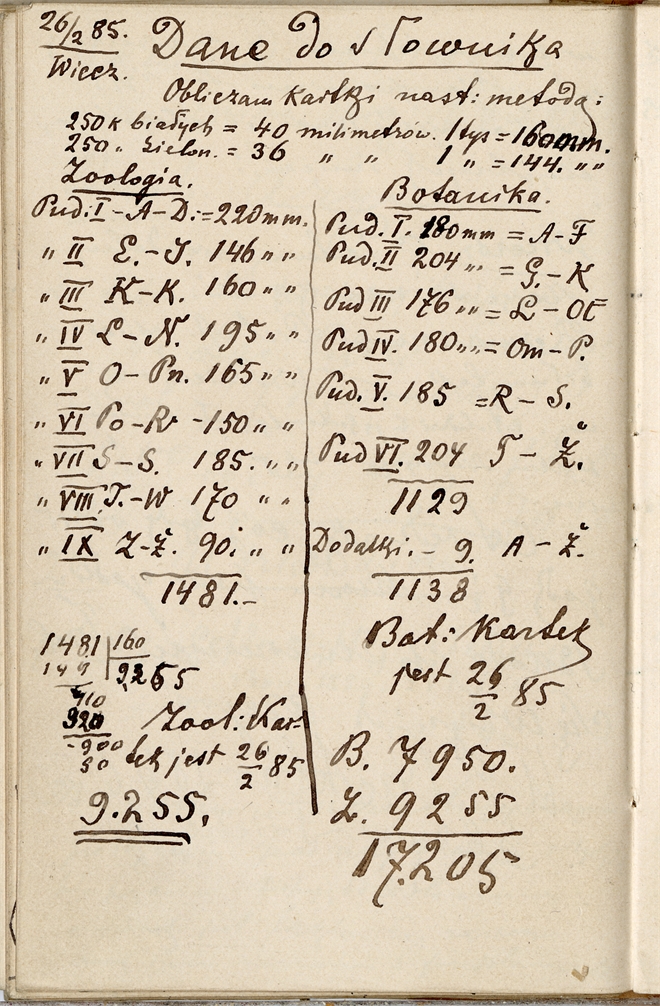 26/2 85. Dane do słownika
Wiecz.
Obliczam kartki nast: metodą:
250 k białych = 40 milimetrów. 1 tys = 160 mm.
250 „ zielon. = 36 „ „ 1 „ = 144. „ „
Zoologia.
Pud: I - A - D. = 220 mm.
„ II E. - J. 146 „ „
„ III K - K. 160 „ „
„ IV L - N. 195 „ „
„ V O - Pn. 165 „ „
„ VI Po - Rv - 150 „ „
„ VII S - S. 185. „ „
„ VIII T. - W 170 „ „
„ IX Z - Ż. 90. „ „
1481. -
1481 | 160
149 9255
410
920
- 900
30
Zool: Kar-
tek jest 26/2 85
9.255.
Botanika.
Pud. I. 180 mm = A - F
Pud. II 204 „ „ = G. - K
Pud III 176 „ „ = L - Oł
Pud IV. 180 „ „ = Om - P.
Pud. V. 185 = R - S.
Pud VI. 204 T - Ż.
1129
Dodatki. - 9. A - Ż.
1138
Bot: Kartek
jest 26/2 85
B. 7950.
Z. 9255
17.205